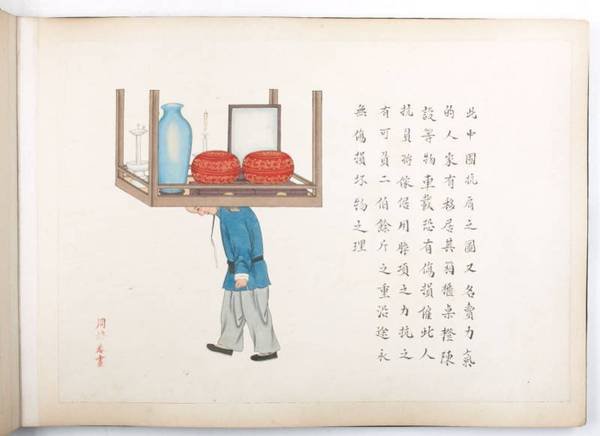 此中國抗肩之圖又名賣力氣
的人家有移居其箱櫃桌橙陳
設等物車載恐有傷損催此人
抗肩將傢俱用脖項之力抗之
有可肩二伯餘斤之重沿途永
無傷損坏物之理
周培春畫